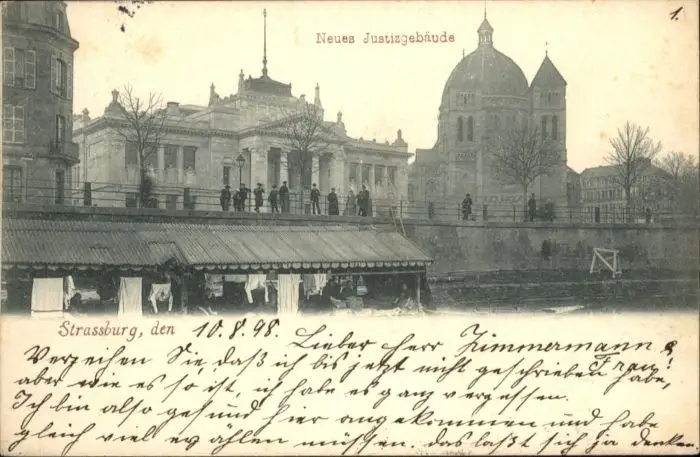 1.
Neues Justizgebäude
Strassburg, den 10.8.98. Lieber Herr Zimmermann &
Frau!
Verzeihen Sie, daß ich bis jetzt nicht geschrieben habe,
aber wie es so ist, ich habe es ganz vergessen.
Ich bin also gesund hier angekommen und habe
gleich viel erzählen müssen. das laßt sich ja denken.